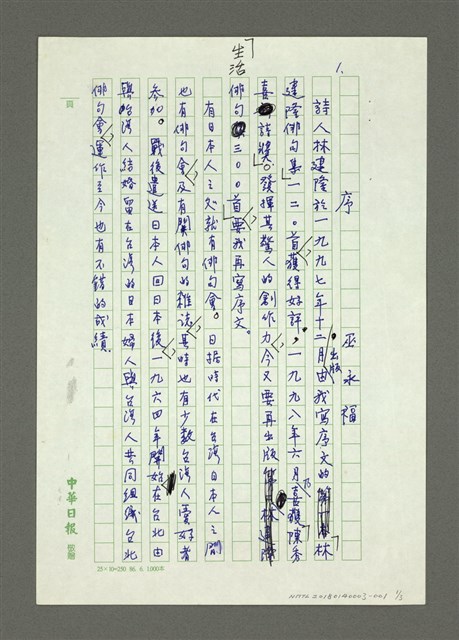 1.
序 巫永福
詩人林建隆於一九九七年十二月出版由我寫序文的「林
建隆俳句集」一二〇首獲得好評，一九九八年六月乃喜獲陳秀
喜詩獎。發揮其驚人的創作力今又要再出版
「生活俳句」三〇〇首要我再寫序文。
有日本人之処就有俳句會。日据時代在台湾日本人之間
也有俳句會及有関俳句的雜誌，其時也有少數台湾人愛好者
参加。戰後遣送日本人回日本後，一九六四年開始在台北由
與台湾人結婚留在台湾的日本婦人與台湾人共同組織台北
俳句會，運作至今也有不錯的成績。
四
中華日報 敬贈
25×10=250 86. 6. 1,000本
NMTL20180140003-001 1/3